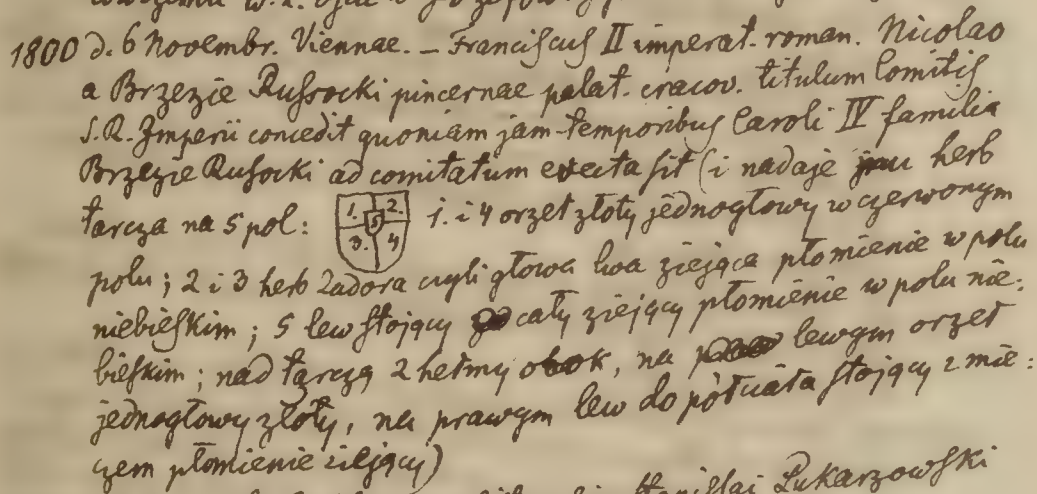 1800 d. 6 Novembr. Viennae. – Franciscus II imperat. roman. Nicolao
a Brzezie Russocki pincernae palat. cracov. titulum Comitis
S. R. Imperii concedit quoniam jam temporibus Caroli IV familia
Brzezie Russocki ad comitatum evecta sit (i nadaje herb
tarcza na 5 pol: 1. 2. 3. 4 5 1. i 4 orzeł złoty jednogłowy w czerwonym
polu; 2 i 3 herb Zadora czyli głowa lwa ziejąca płomienie w polu
niebieskim; 5 lew stojący cały ziejący płomienie w polu nie:
bieskim; nad tarczą 2 hełmy obok, na lewym orzeł
jednogłowy złoty, na prawym lew do półciała stojący z mie:
czem płomienie ziejący)
Stanislai Lukarzowski